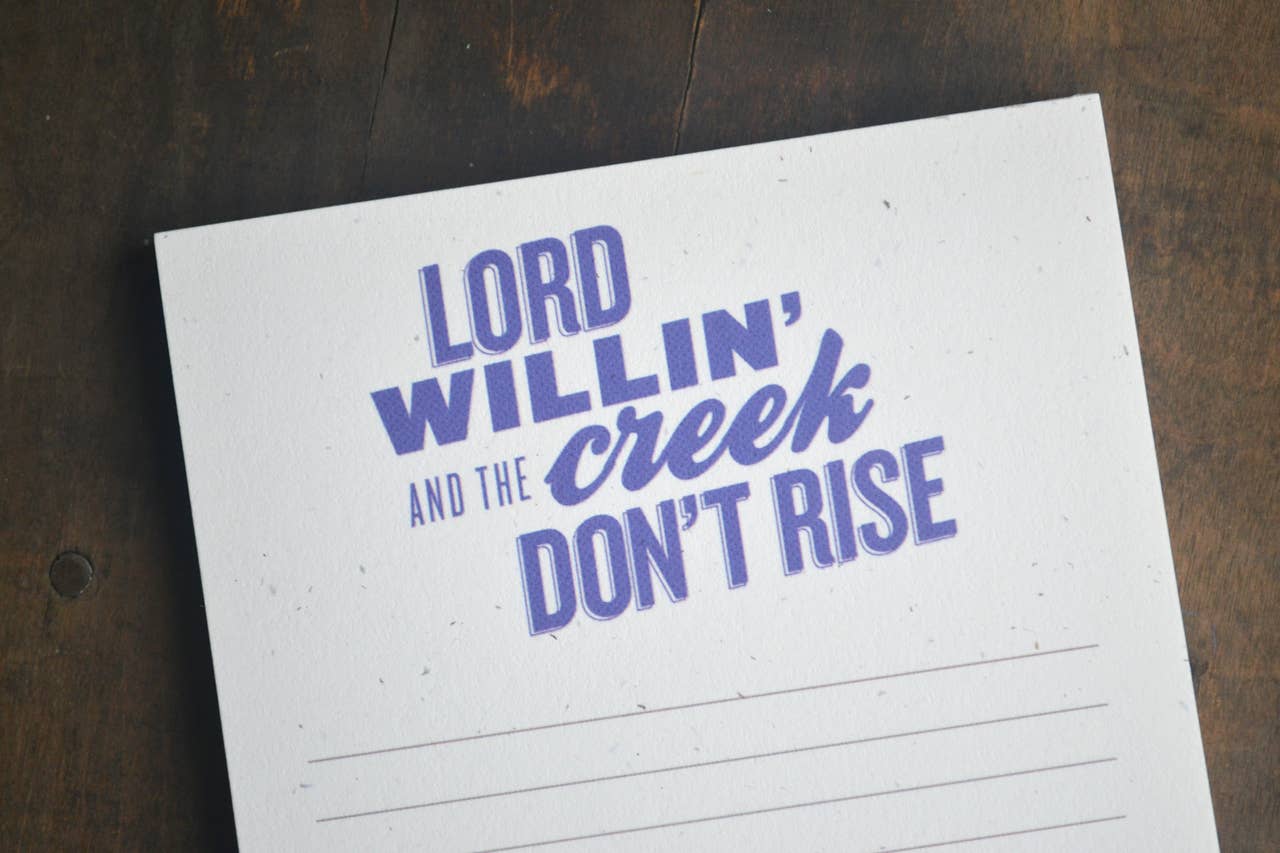 LORD
WILLIN'
AND THE creek
DON'T RISE